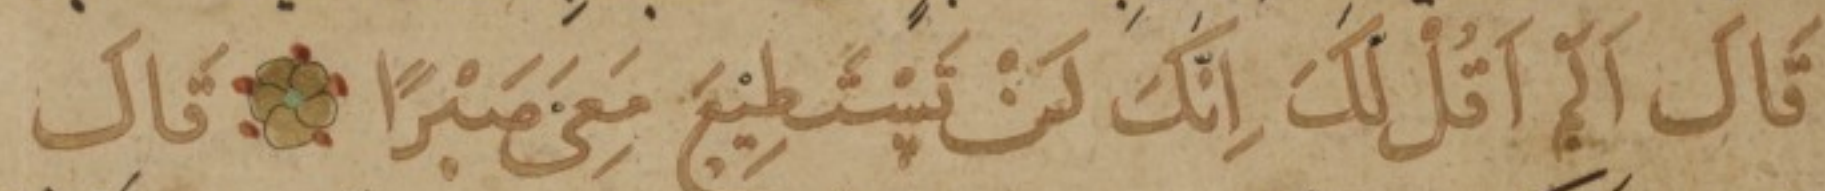 قَالَ اَلَمْ اَقُلْ لَكَ اِنَّكَ لَنْ تَسْتَطِيْعَ مَعِىَ صَبْرًا ۝ قَالَ